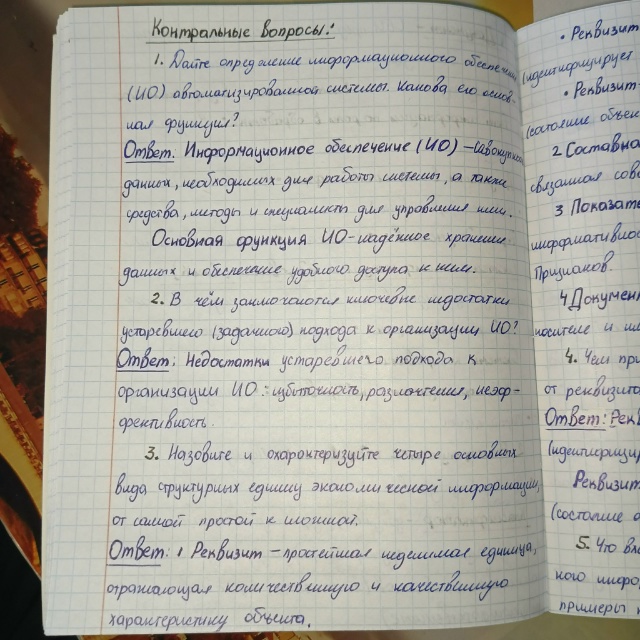 Контральные вопросы:
1. Дайте определение информационного обеспечения
(ИО) автоматизированной системы. Какова его основ-
ная функция?
Ответ: Информационное обеспечение (ИО) – совокупность
данных, необходимых для работы системы, а также
средства, методы и специалисты для управления ими.
Основная функция ИО - надёжное хранение
данных и обеспечение удобного доступа к ним.
2. В чём заключаются ключевые недостатки
устаревшего (задачного) подхода к организации ИО?
Ответ: Недостатки устаревшего подхода к
организации ИО: избыточность, разночтения, неэф-
фективность.
3. Назовите и охарактеризуйте четыре основных
вида структурных единиц экономической информации,
от самой простой к сложной.
Ответ: 1 Реквизит – простейшая неделимая единица,
отражающая количественную и качественную
характеристику объекта.
• Реквизит
(идентифицирует
• Реквизит-
(состояние объек
2 Составна
связанная сов
3 Показате
информативнос
Признаков.
4 Документ
носителе и
4. Чем при
от реквизита
Ответ: Рекв
(идентифицир
Реквизит
(состояние о
5. Что вл
кого инфор
примеры